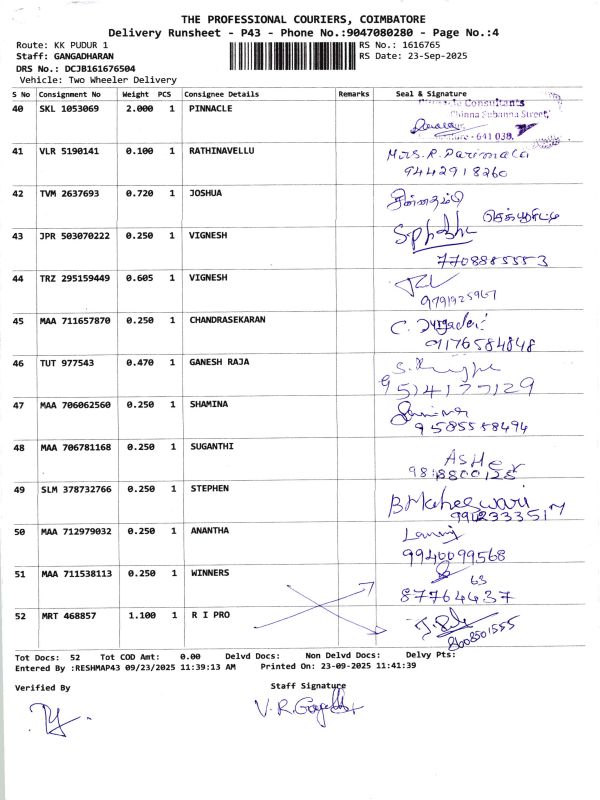 THE PROFESSIONAL COURIERS, COIMBATORE
Delivery Runsheet - P43 - Phone No.:9047080280 - Page No.:4
Route: KK PUDUR 1 RS No.: 1616765
Staff: GANGADHARAN RS Date: 23-Sep-2025
DRS No.: DCJB161676504
Vehicle: Two Wheeler Delivery
S No Consignment No Weight PCS Consignee Details Remarks Seal & Signature
40 SKL 1053069 2.000 1 PINNACLE Consultants
Chinna Subanna Street,
- 641 038.
41 VLR 5190141 0.100 1 RATHINAVELLU Mrs. R. Parimala
9442918260
42 TVM 2637693 0.720 1 JOSHUA
43 JPR 503070222 0.250 1 VIGNESH
7708885553
44 TRZ 295159449 0.605 1 VIGNESH
9791925967
45 MAA 711657870 0.250 1 CHANDRASEKARAN C.
9176584848
46 TUT 977543 0.470 1 GANESH RAJA
9514177129
47 MAA 706062560 0.250 1 SHAMINA
9585558494
48 MAA 706781168 0.250 1 SUGANTHI
49 SLM 378732766 0.250 1 STEPHEN B Maheswari
50 MAA 712979032 0.250 1 ANANTHA
9940099568
51 MAA 711538113 0.250 1 WINNERS
63
87764437
52 MRT 468857 1.100 1 R I PRO
8608501555
Tot Docs: 52 Tot COD Amt: 0.00 Delvd Docs: Non Delvd Docs: Delvy Pts:
Entered By :RESHMAP43 09/23/2025 11:39:13 AM Printed On: 23-09-2025 11:41:39
Verified By Staff Signature